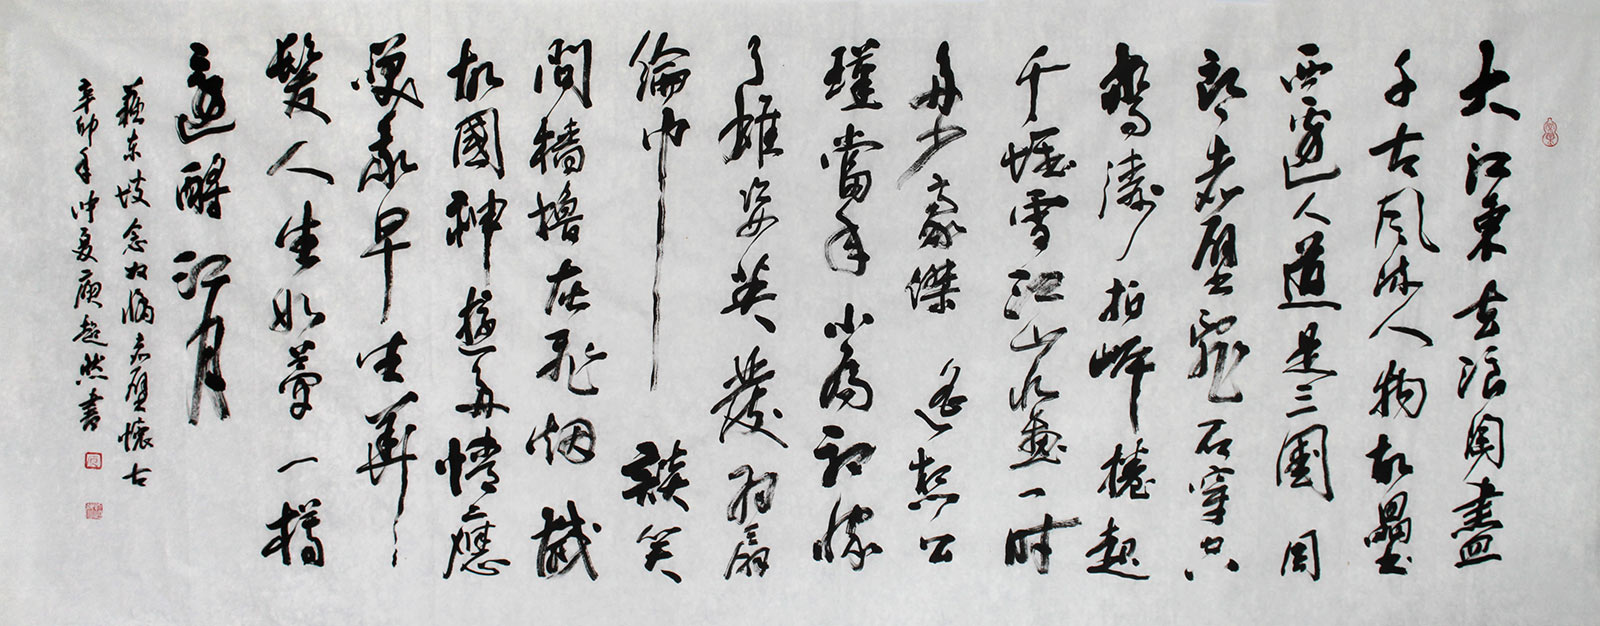 大江東去浪淘盡
千古風流人物故壘
西邊人道是三國周
郎赤壁亂石穿空
驚濤拍岸捲起
千堆雪江山如畫一時
多少豪傑遙想公
瑾當年小喬初嫁
了雄姿英發羽扇
綸巾談笑
間檣櫓灰飛烟滅
故國神遊多情應
笑我早生華
髮人生如夢一樽
還酹江月
蘇東坡念奴嬌赤壁懷古
辛卯年仲夏超然書